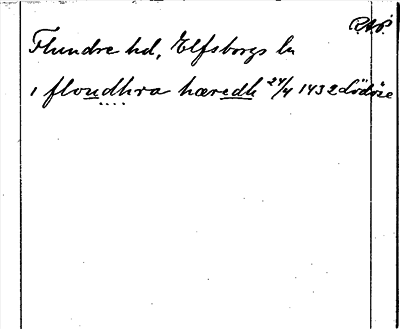 RAP.
Flundre hd, Elfsborgs ln
i floudhra hæredh 24/4 1432 Lödöse